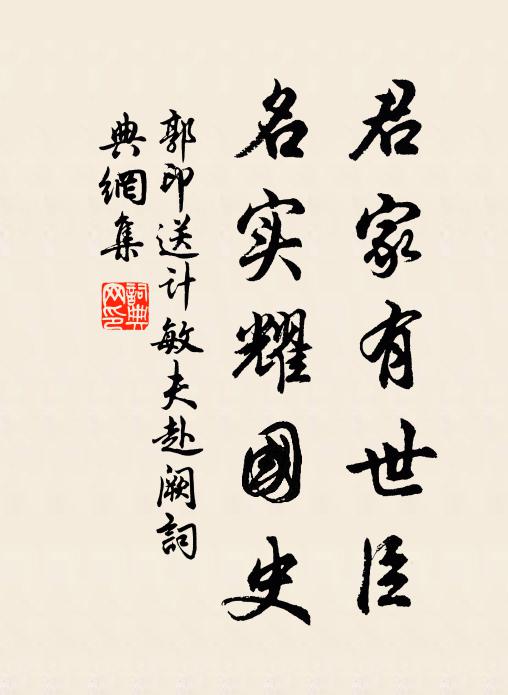 君家有世臣
名实耀國史
郭印送计敏夫赴阙詞
典網集
詞典网印